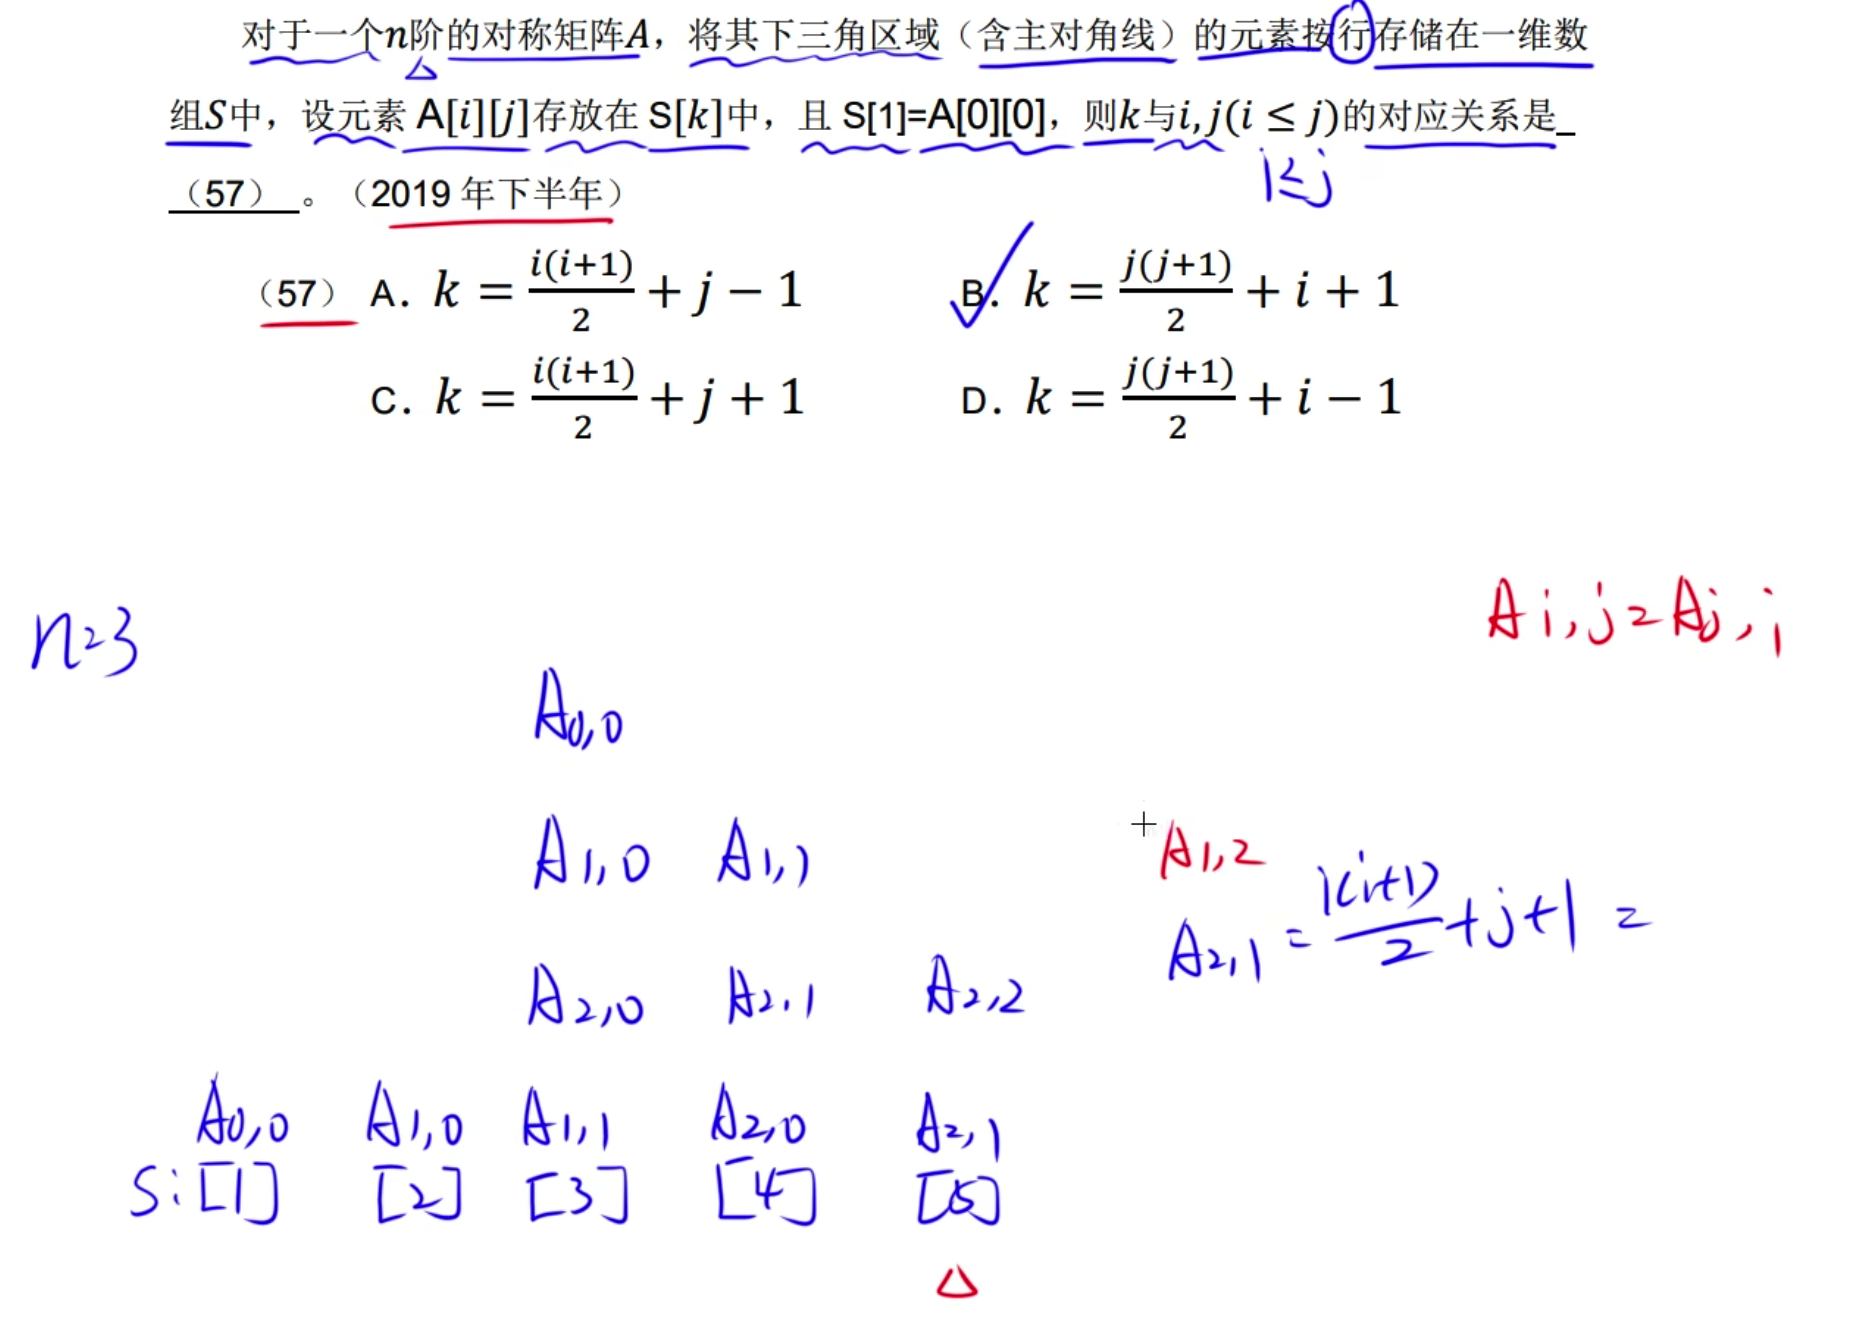 对于一个n阶的对称矩阵A，将其下三角区域（含主对角线）的元素按行存储在一维数
组S中，设元素 A[i][j]存放在 S[k]中，且 S[1]=A[0][0]，则k与i,j(i ≤ j)的对应关系是_
（57） 。（2019 年下半年）
i≤j
（57） A. k = i(i+1)/2 + j − 1 B. k = j(j+1)/2 + i + 1
C. k = i(i+1)/2 + j + 1 D. k = j(j+1)/2 + i − 1
n=3
Ai,j=Aj,i
A0,0
A1,0 A1,1
A1,2
A2,1 = i(i+1)/2 + j+1 =
A2,0 A2,1 A2,2
A0,0 A1,0 A1,1 A2,0 A2,1
S:[1] [2] [3] [4] [5]